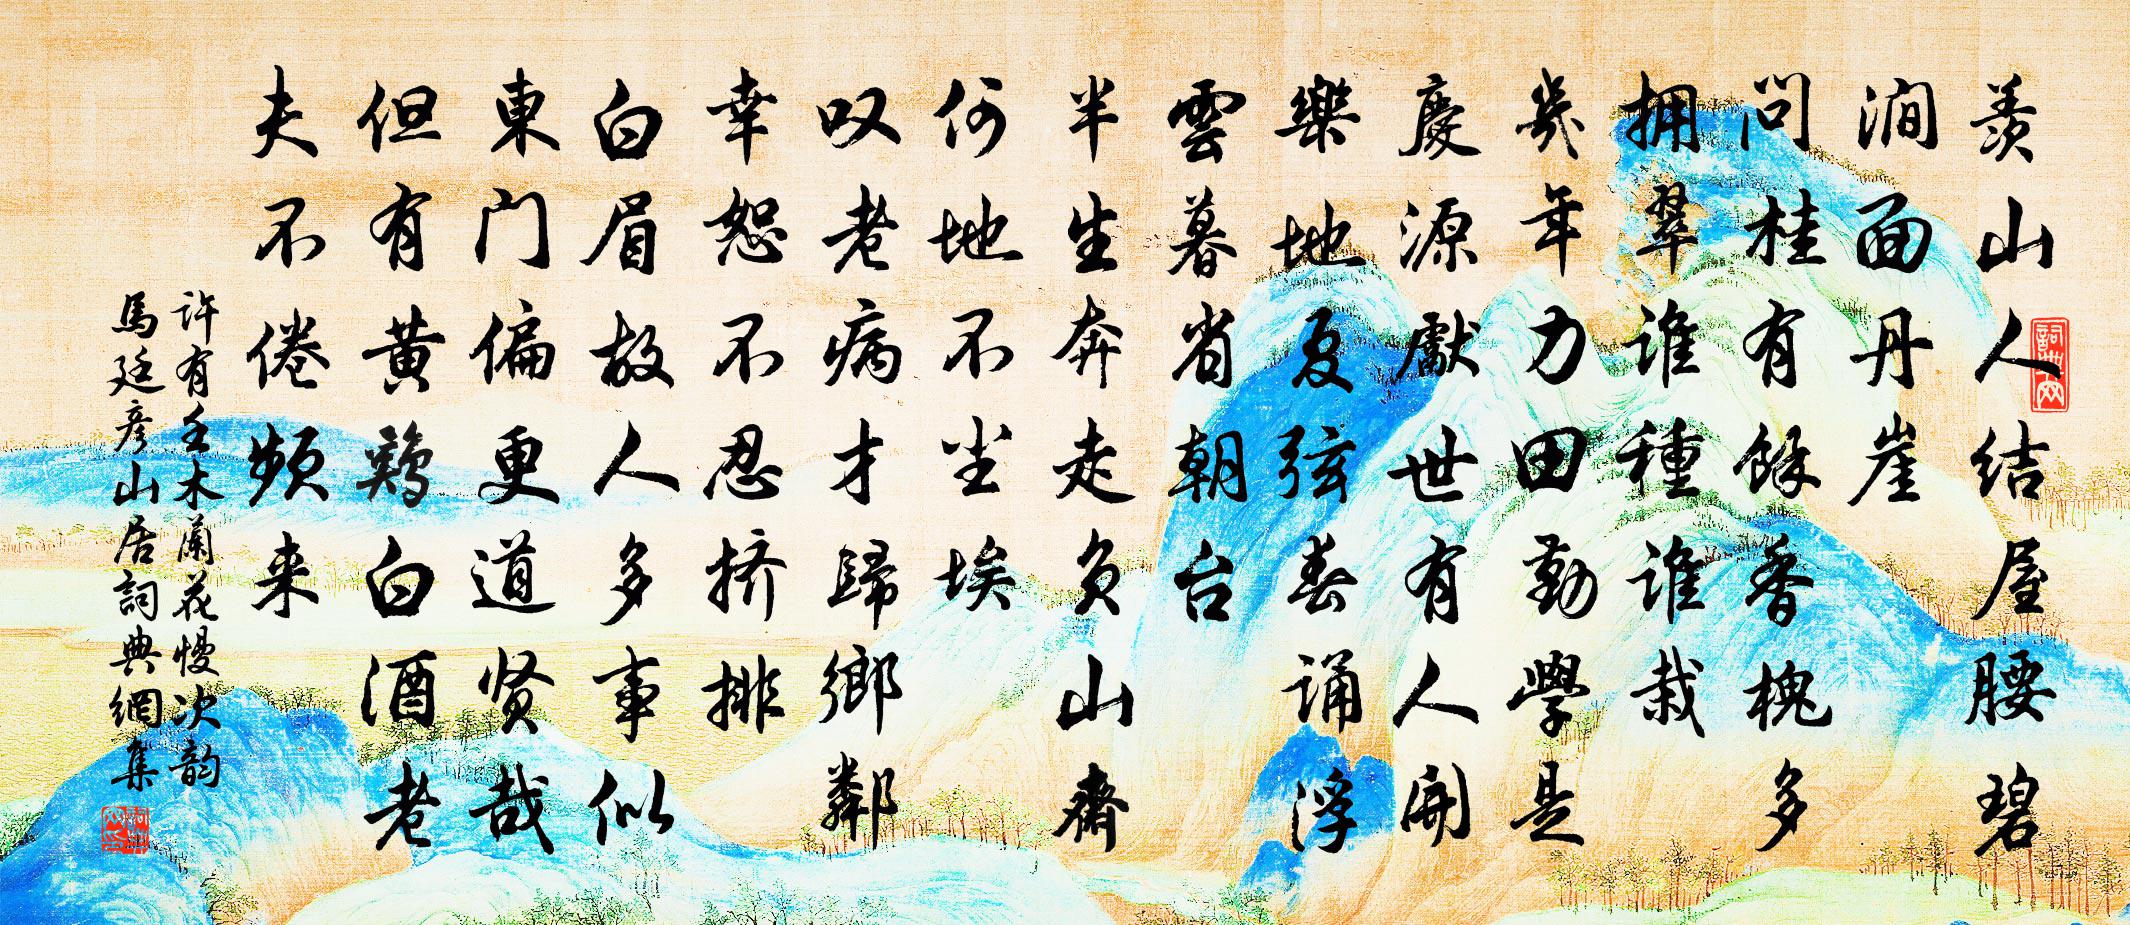 羨山人结屋腰碧
澗面丹崖
问桂有餘香槐多
拥翠谁種谁栽
幾年力田勤學是
慶源獻世有人開
樂地夏弦春诵浮
雲暮省朝台
半生奔走負山齋
何地不尘埃
叹老病才歸鄉鄰
幸恕不忍挤排
白眉故人多事似
東门偏更道贤哉
但有黄鷄白酒老
夫不倦频来
许有壬木蘭花慢次韵
馬廷彦山居詞典網集